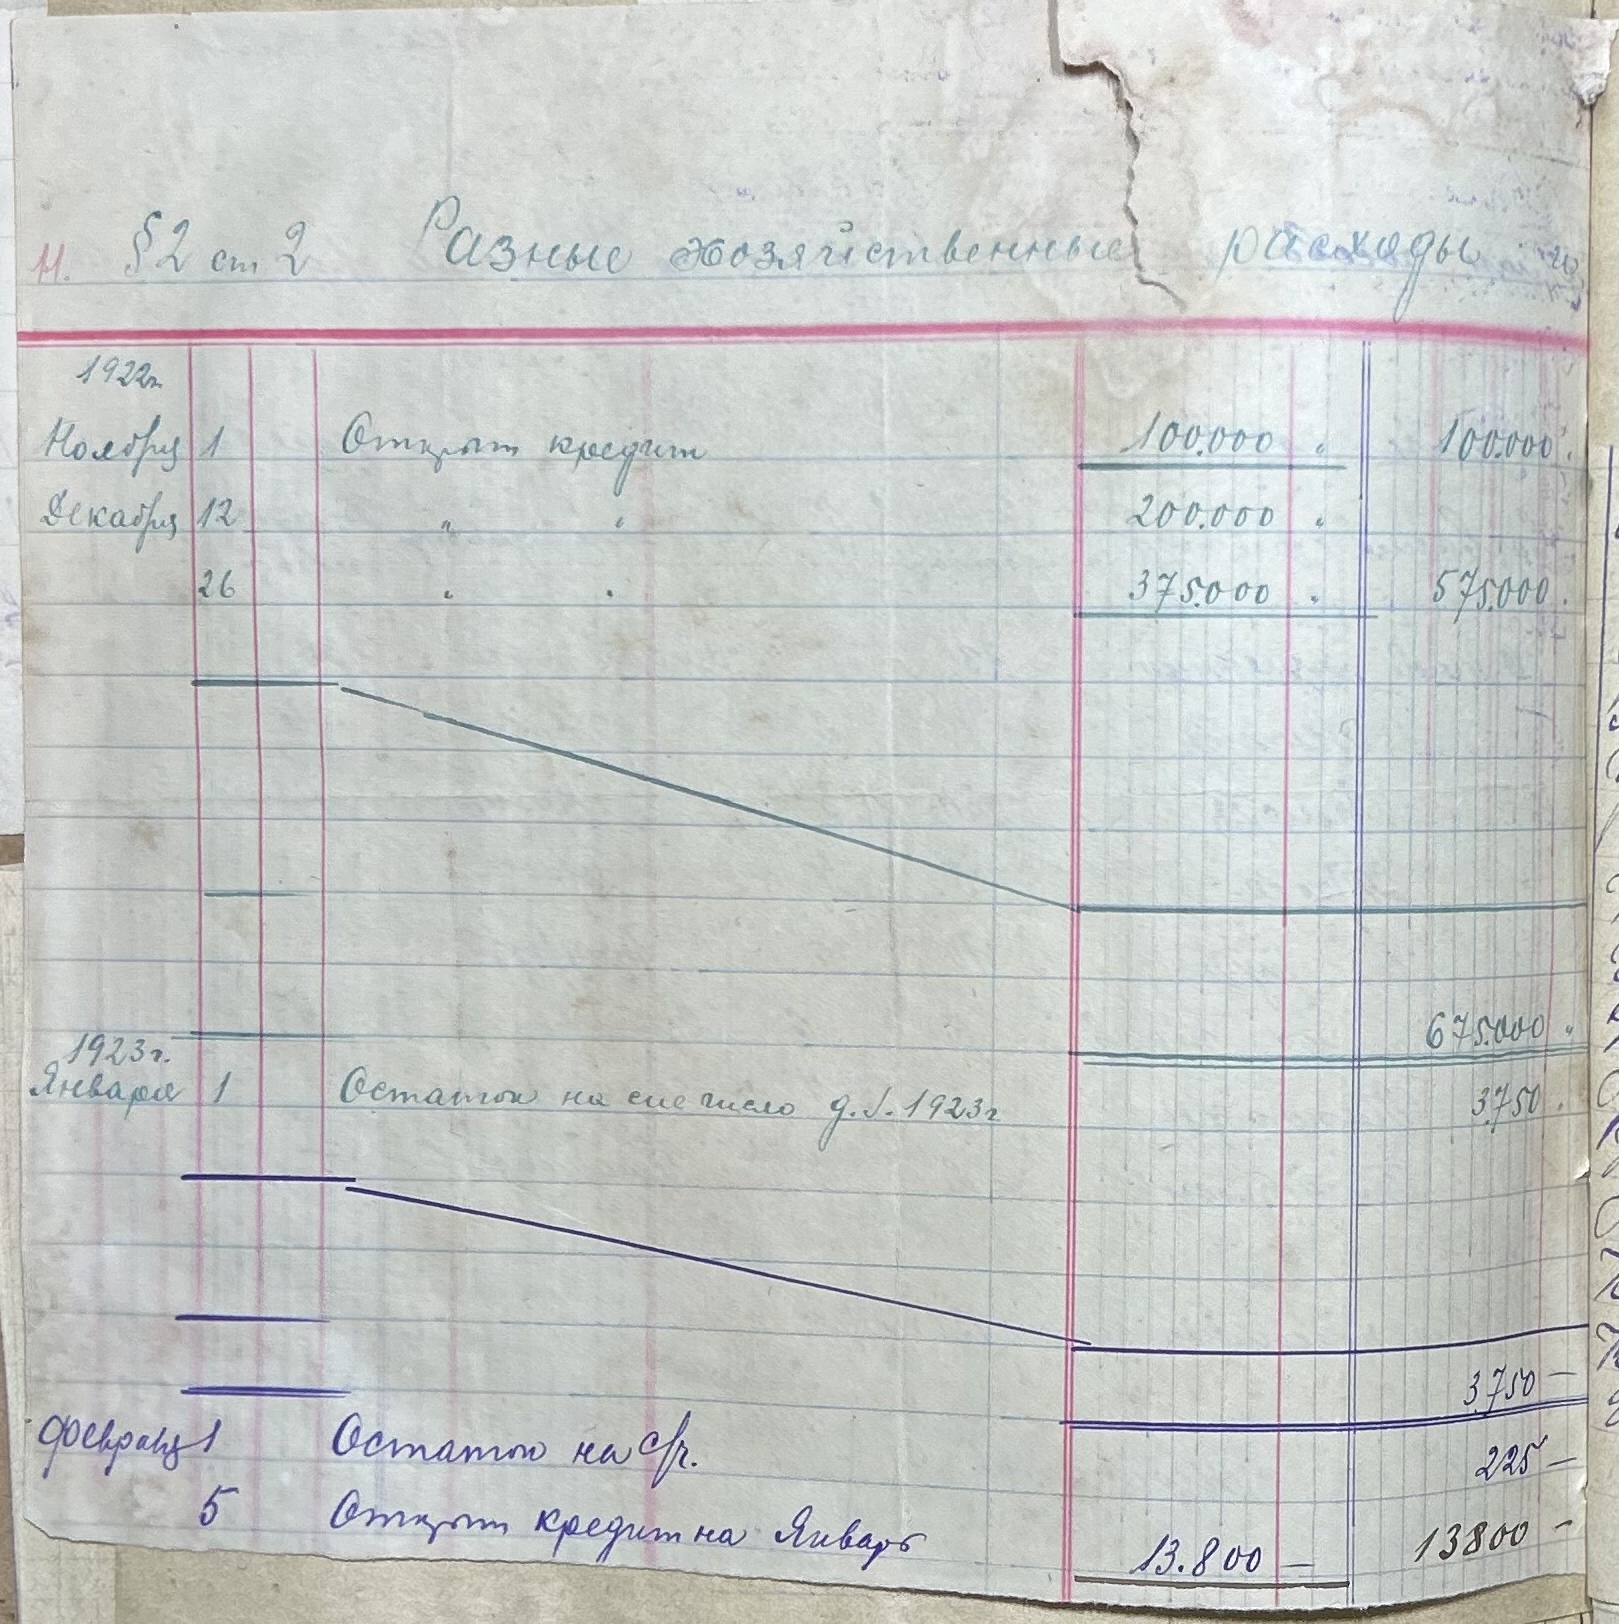 11. § 2 ст 2 Разные хозяйственные расходы
1922г.
Ноября 1 Открыт кредит 100.000 " 100.000 "
Декабря 12 " " 200.000 "
26 " " 375.000 " 575.000 "
675.000 "
1923г.
Января 1 Остаток на сие число 1923г 3.750 "
3.750 —
Февраля 1 Остаток на с/ч. 225 —
5 Открыт кредит на Январь 13.800 — 13800 —